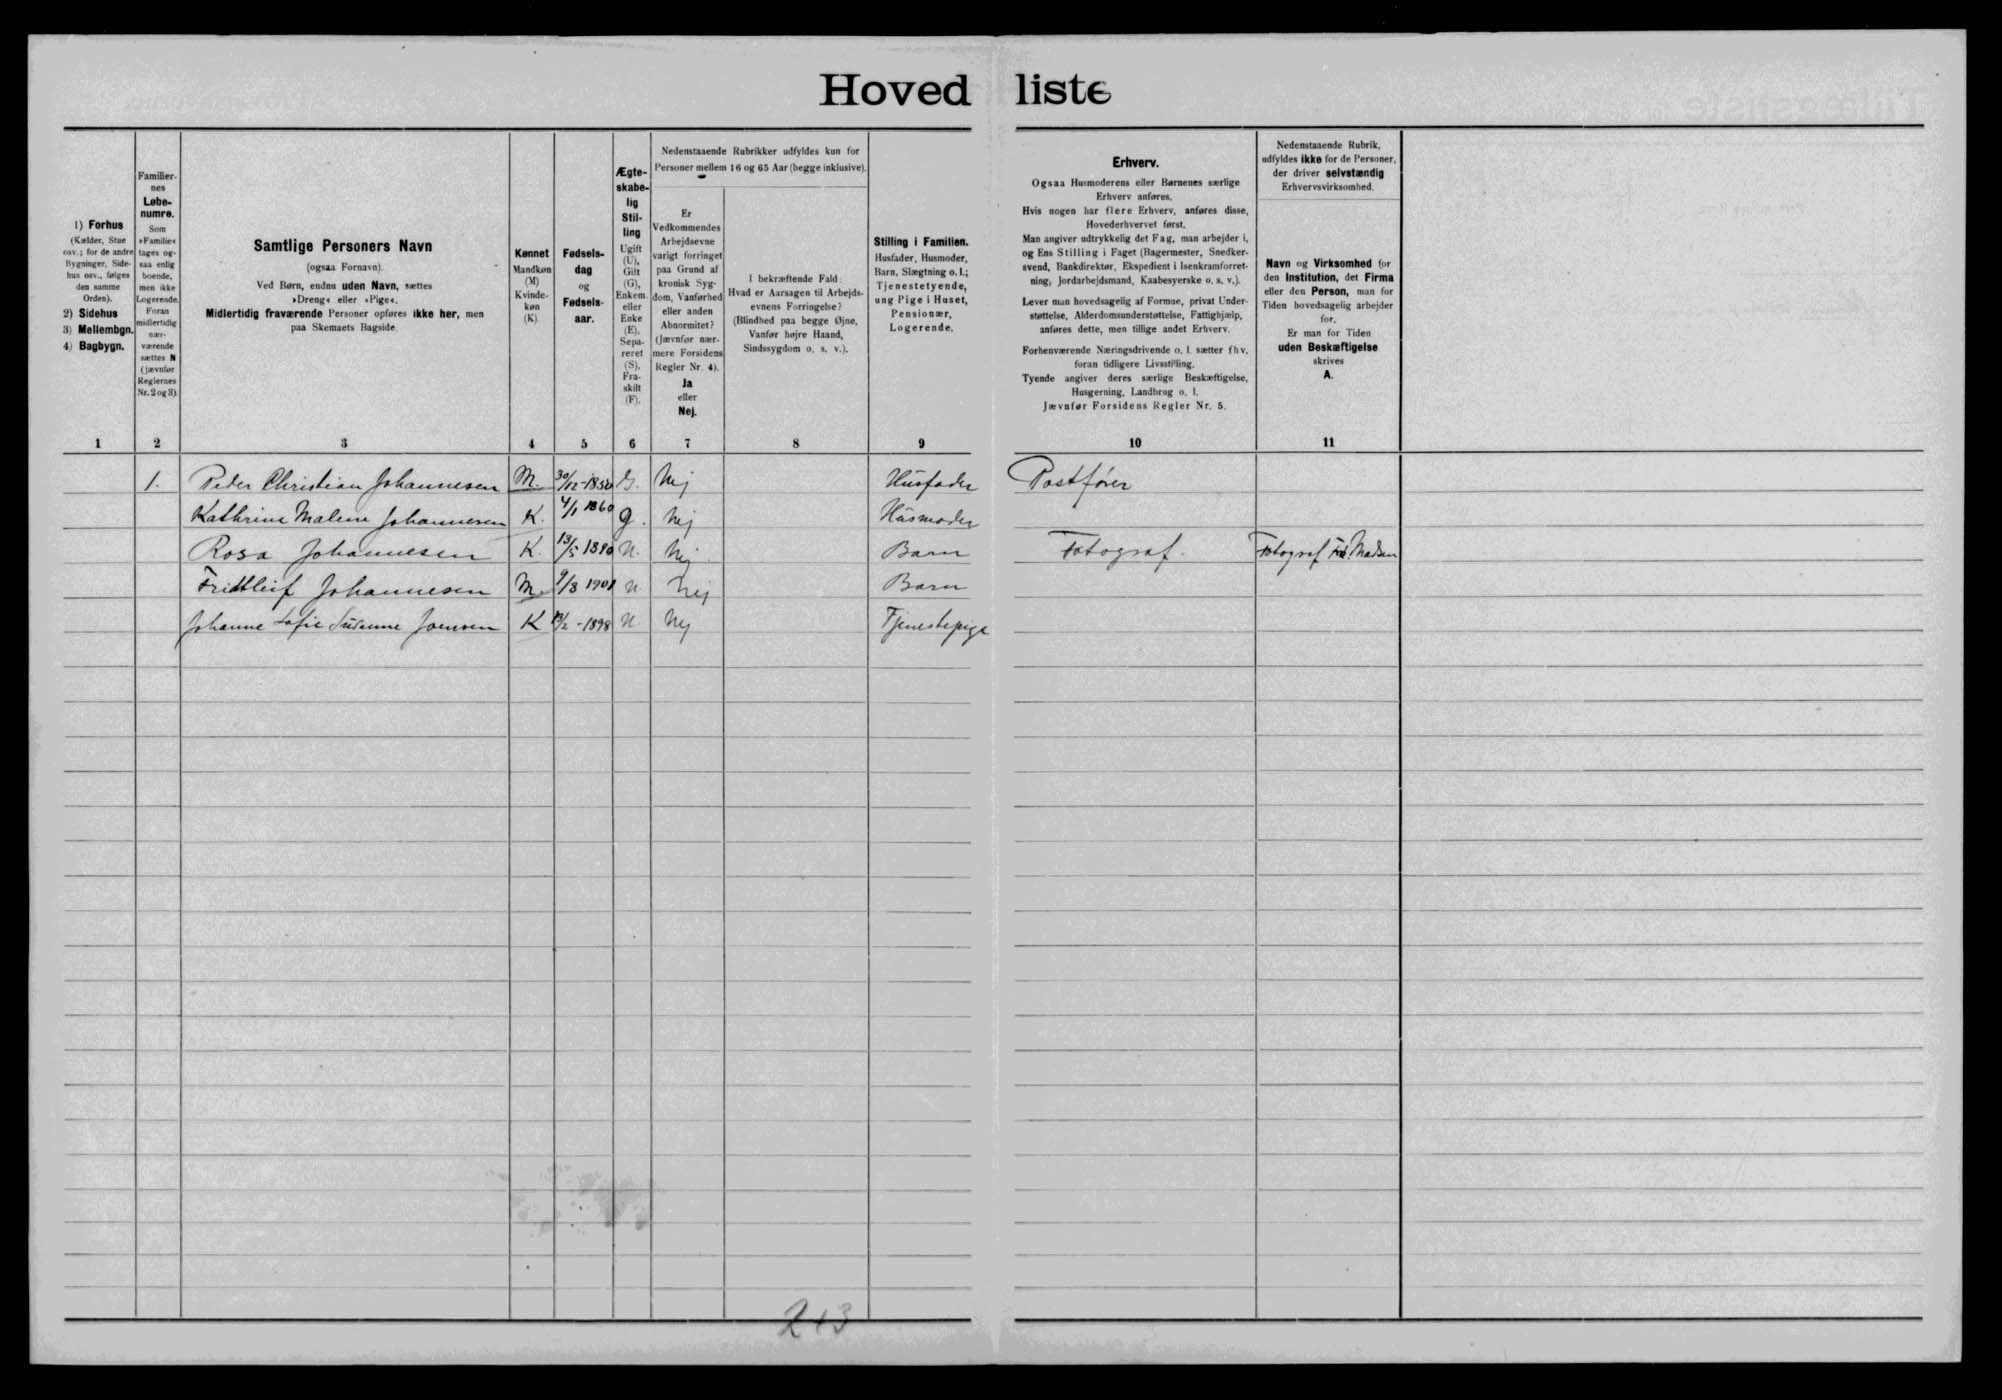 Hovedliste
1) Forhus
(Kælder, Stue
osv.; for de andre
Bygninger, Side-
hus osv., følges
den samme
Orden).
2) Sidehus
3) Mellembgn.
4) Bagbygn.
Familier-
nes
Løbe-
numre.
Som
»Familie«
tages og-
saa enlig
boende,
men ikke
Logerende.
Foran
midlertidig
nær-
værende
sættes N
(jævnfør
Reglernes
Nr. 2 og 3).
Samtlige Personers Navn
(ogsaa Fornavn).
Ved Børn, endnu uden Navn, sættes
»Dreng« eller »Pige«.
Midlertidig fraværende Personer opføres ikke her, men
paa Skemaets Bagside.
Kønnet
Mandkøn
(M)
Kvinde-
køn
(K).
Fødsels-
dag
og
Fødsels-
aar.
Ægte-
skabe-
lig
Stil-
ling
Ugift
(U),
Gift
(G),
Enkem.
eller
Enke
(E),
Sepa-
reret
(S),
Fra-
skilt
(F).
Nedenstaaende Rubrikker udfyldes kun for
Personer mellem 16 og 65 Aar (begge inklusive).
Er
Vedkommendes
Arbejdsevne
varigt forringet
paa Grund af
kronisk Syg-
dom, Vanførhed
eller anden
Abnormitet?
(Jævnfør nær-
mere Forsidens
Regler Nr. 4).
Ja
eller
Nej.
I bekræftende Fald.
Hvad er Aarsagen til Arbejds-
evnens Forringelse?
(Blindhed paa begge Øjne,
Vanfør højre Haand,
Sindssygdom o. s. v.).
Stilling i Familien.
Husfader, Husmoder,
Barn, Slægtning o. l.;
Tjenestetyende,
ung Pige i Huset,
Pensionær,
Logerende.
Erhverv.
Ogsaa Husmoderens eller Børnenes særlige
Erhverv anføres.
Hvis nogen har flere Erhverv, anføres disse,
Hovederhvervet først.
Man angiver udtrykkelig det Fag, man arbejder i,
og Ens Stilling i Faget (Bagermester, Snedker-
svend, Bankdirektør, Ekspedient i Isenkramforret-
ning, Jordarbejdsmand, Kaabesyerske o. s. v.).
Lever man hovedsagelig af Formue, privat Under-
støttelse, Alderdomsunderstøttelse, Fattighjælp,
anføres dette, men tillige andet Erhverv.
Forhenværende Næringsdrivende o. l. sætter fhv.
foran tidligere Livsstilling.
Tyende angiver deres særlige Beskæftigelse,
Husgerning, Landbrug o. l.
Jævnfør Forsidens Regler Nr. 5.
Nedenstaaende Rubrik,
udfyldes ikke for de Personer,
der driver selvstændig
Erhvervsvirksomhed.
Navn og Virksomhed for
den Institution, det Firma
eller den Person, man for
Tiden hovedsagelig arbejder
for.
Er man for Tiden
uden Beskæftigelse
skrives
A.
1 2 3 4 5 6 7 8 9 10 11
1. Peder Christian Johannesen M. 30/12-1850 G. Nej Husfader Postfører
Kathrine Malene Johannesen K. 4/1 1860 G. Nej Husmoder
Rosa Johannesen K. 13/5 1890 U. Nej Barn Fotograf. Fotograf Madsen
Fridtleif Johannesen M. 9/8 1901 U Nej Barn
Johanne Sofie Susanne Joensen K /2-1898 U Nej Tjenestepige
213